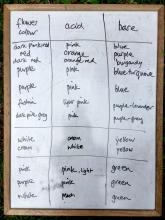 flower colour acid base
dark purple red pink blue
red orange purple
dark red orange/red burgundy
purple pink blue/turquoise
purple pink blue
fuchsia light pink purple-lavender
dark pink-grey pink purple-grey
white cream yellow
cream white yellow
pink pink, light green
purple pink green
white green